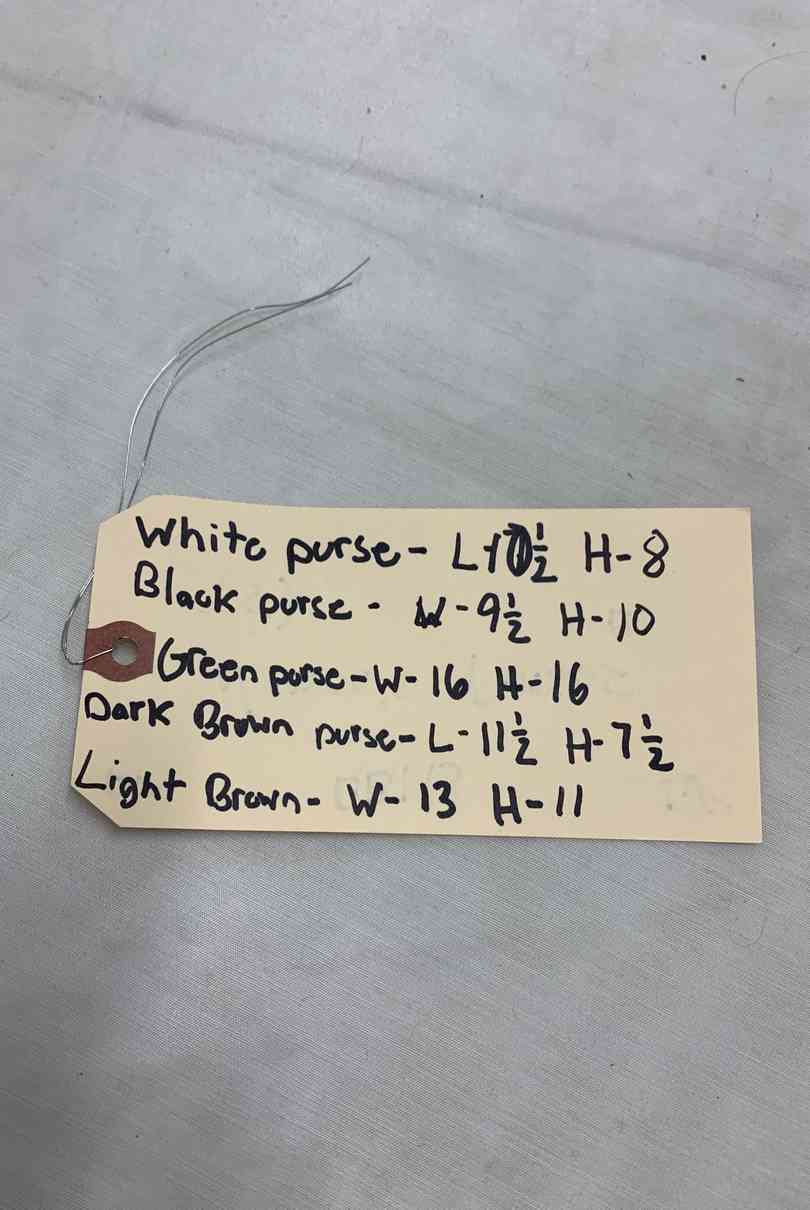 White purse- L- ½ H-8
Black purse - W-9½ H-10
Green purse-W-16 H-16
Dark Brown purse-L-11½ H-7½
Light Brown- W-13 H-11